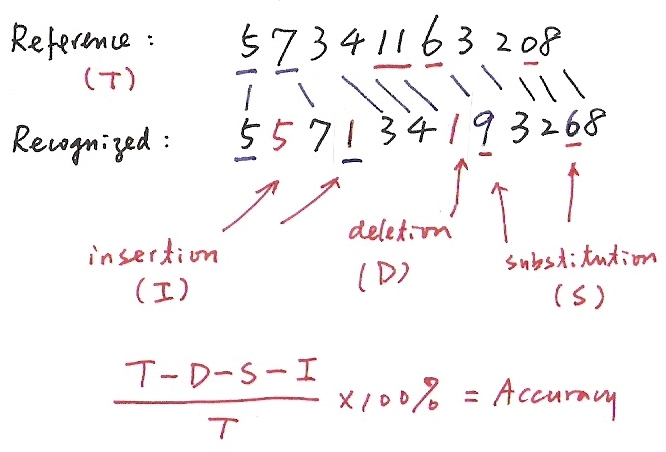 Reference : 5 7 3 4 1 1 6 3 2 0 8
(T)
Recognized : 5 5 7 1 3 4 1 9 3 2 6 8
insertion
(I)
deletion
(D)
substitution
(S)
T-D-S-I
T
×100% = Accuracy